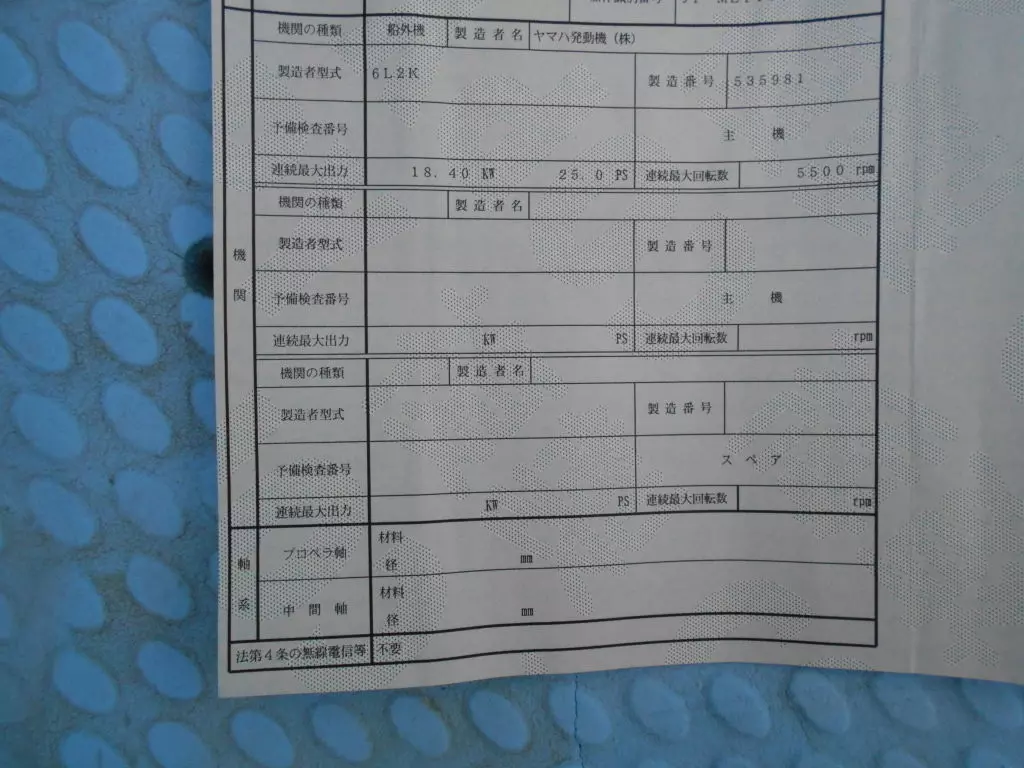 機関の種類 船外機 製造者名 ヤマハ発動機(株)
製造者型式 6L2K 製造番号 535981
予備検査番号 主機
連続最大出力 18.40 KW 25.0 PS 連続最大回転数 5500 rpm
機関の種類 製造者名
製造者型式 製造番号
機関
予備検査番号 主機
連続最大出力 KW PS 連続最大回転数 rpm
機関の種類 製造者名
製造者型式 製造番号
予備検査番号 スペア
連続最大出力 KW PS 連続最大回転数 rpm
軸系
プロペラ軸 材料
径 mm
中間軸 材料
径 mm
法第4条の無線電信等 不要